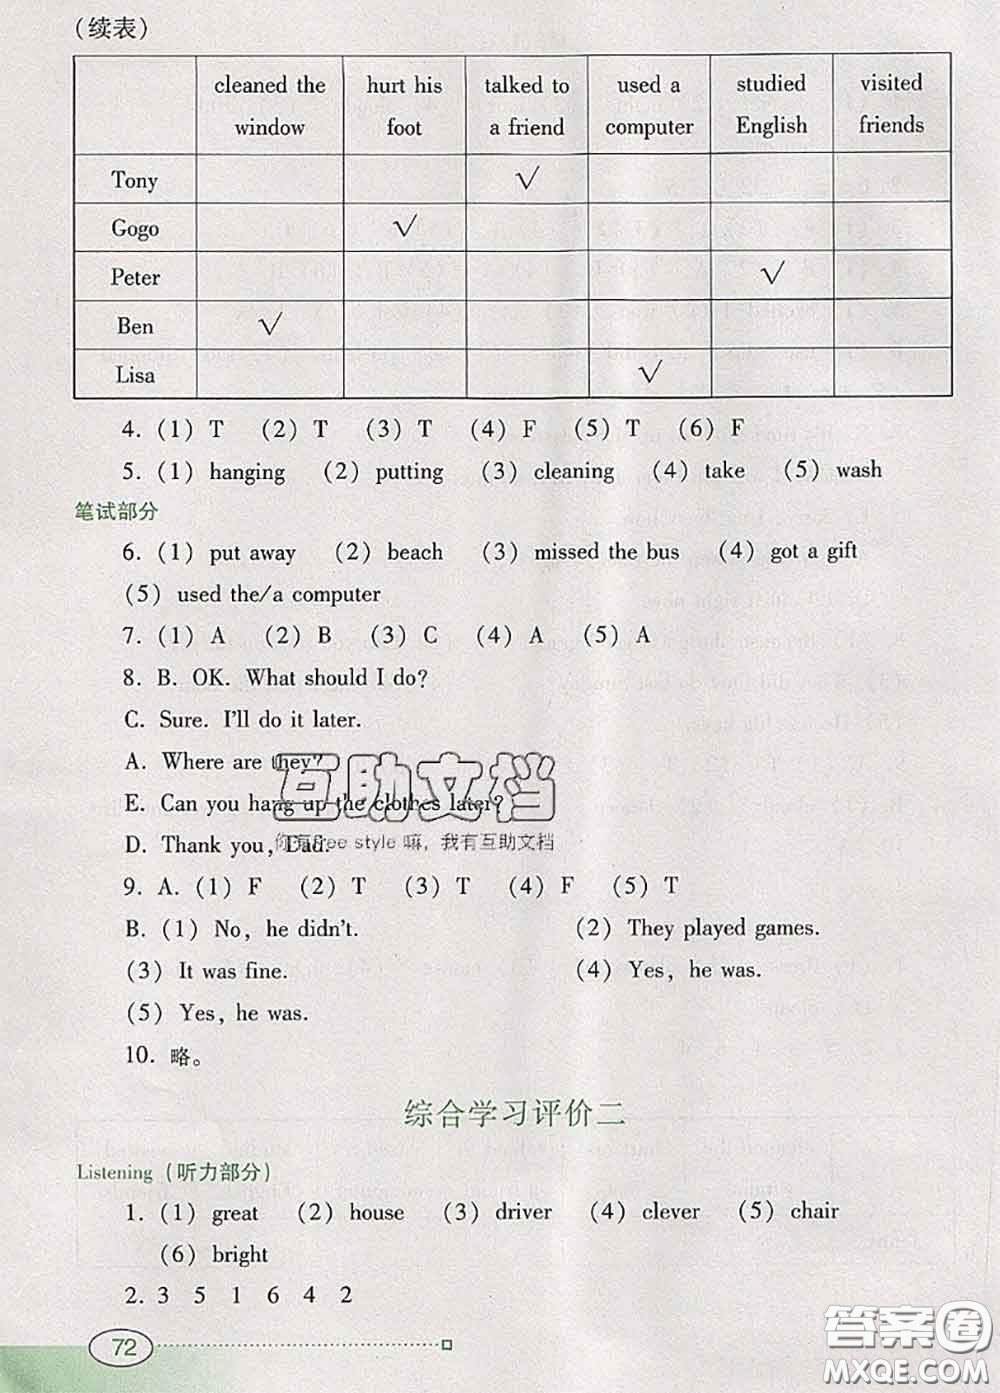 （续表）
cleaned the window hurt his foot talked to a friend used a computer studied English visited friends
Tony √
Gogo √
Peter √
Ben √
Lisa √
4. (1) T (2) T (3) T (4) F (5) T (6) F
5. (1) hanging (2) putting (3) cleaning (4) take (5) wash
笔试部分
6. (1) put away (2) beach (3) missed the bus (4) got a gift
(5) used the/a computer
7. (1) A (2) B (3) C (4) A (5) A
8. B. OK. What should I do?
C. Sure. I'll do it later.
A. Where are they?
E. Can you hang up the clothes later?
D. Thank you, Dad.
互助文档
你有free style 嘛，我有互助文档
9. A. (1) F (2) T (3) T (4) F (5) T
B. (1) No, he didn't. (2) They played games.
(3) It was fine. (4) Yes, he was.
(5) Yes, he was.
10. 略。
综合学习评价二
Listening（听力部分）
1. (1) great (2) house (3) driver (4) clever (5) chair
(6) bright
2. 3 5 1 6 4 2
72
答案圈
MXQE.COM